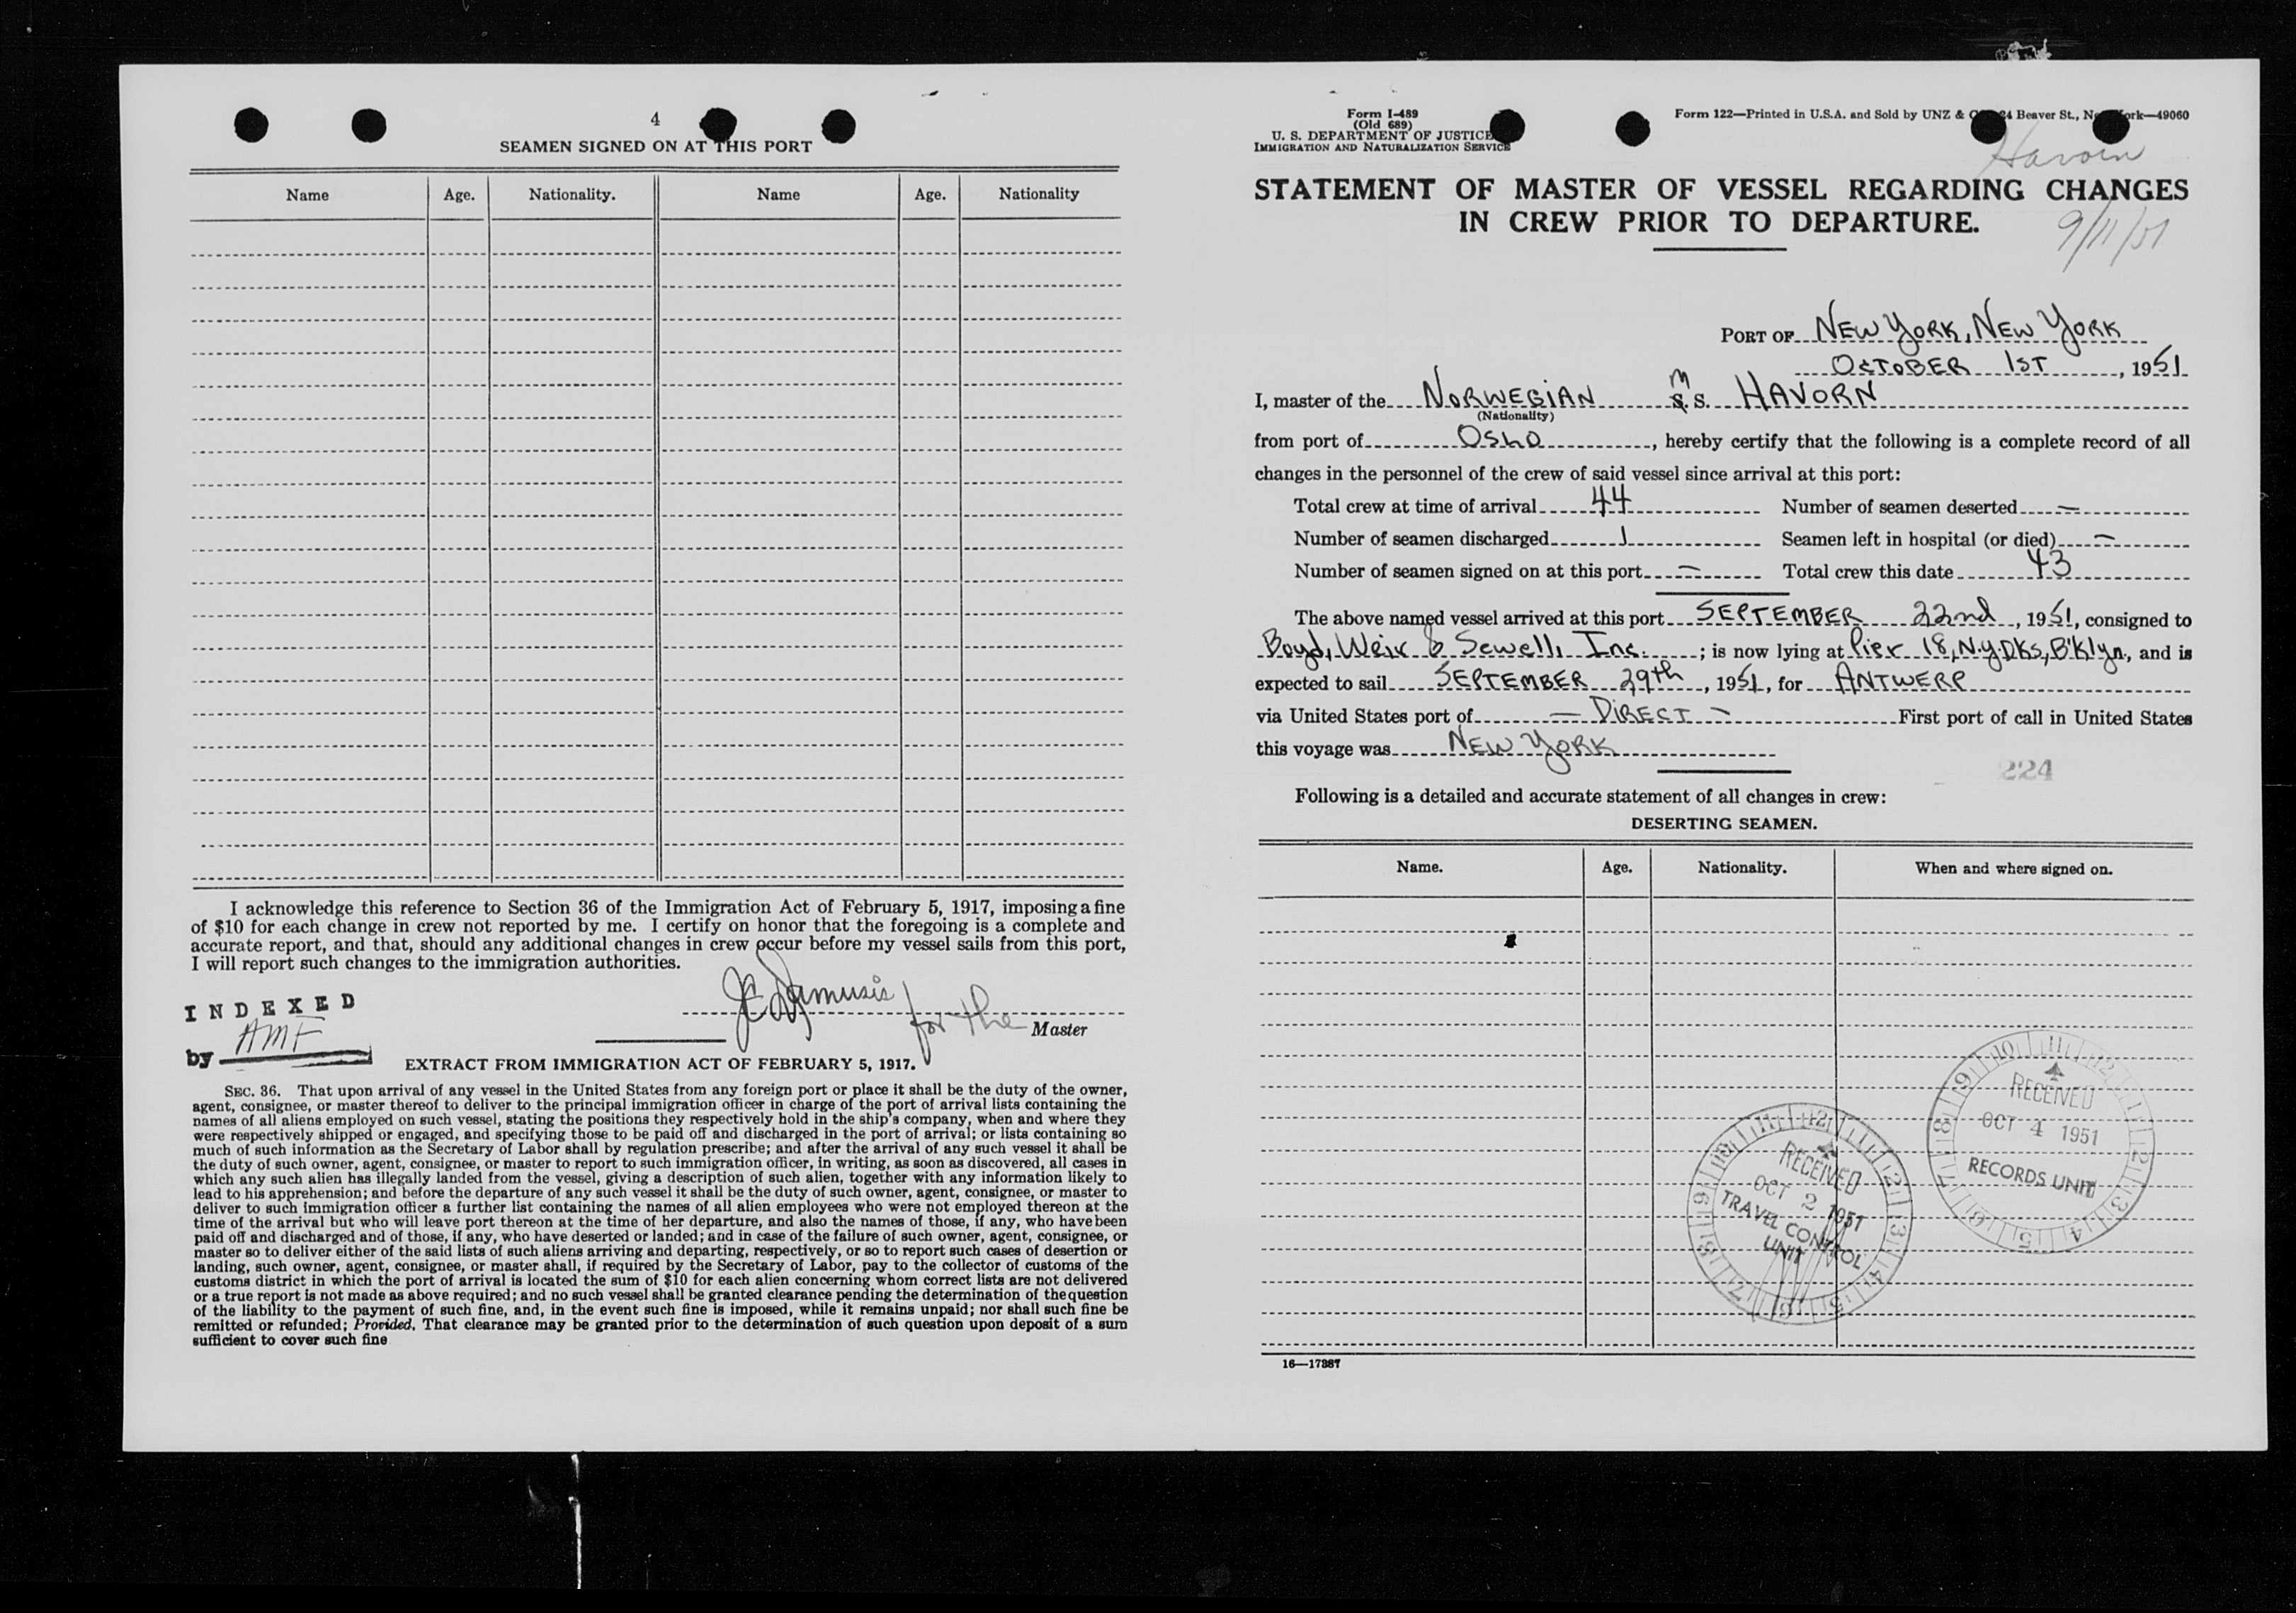 4
SEAMEN SIGNED ON AT THIS PORT
Name Age. Nationality. Name Age. Nationality
I acknowledge this reference to Section 36 of the Immigration Act of February 5, 1917, imposing a fine
of $10 for each change in crew not reported by me. I certify on honor that the foregoing is a complete and
accurate report, and that, should any additional changes in crew occur before my vessel sails from this port,
I will report such changes to the immigration authorities.
INDEXED
by AMF
for the Master
EXTRACT FROM IMMIGRATION ACT OF FEBRUARY 5, 1917.
SEC. 36. That upon arrival of any vessel in the United States from any foreign port or place it shall be the duty of the owner,
agent, consignee, or master thereof to deliver to the principal immigration officer in charge of the port of arrival lists containing the
names of all aliens employed on such vessel, stating the positions they respectively hold in the ship's company, when and where they
were respectively shipped or engaged, and specifying those to be paid off and discharged in the port of arrival; or lists containing so
much of such information as the Secretary of Labor shall by regulation prescribe; and after the arrival of any such vessel it shall be
the duty of such owner, agent, consignee, or master to report to such immigration officer, in writing, as soon as discovered, all cases in
which any such alien has illegally landed from the vessel, giving a description of such alien, together with any information likely to
lead to his apprehension; and before the departure of any such vessel it shall be the duty of such owner, agent, consignee, or master to
deliver to such immigration officer a further list containing the names of all alien employees who were not employed thereon at the
time of the arrival but who will leave port thereon at the time of her departure, and also the names of those, if any, who have been
paid off and discharged and of those, if any, who have deserted or landed; and in case of the failure of such owner, agent, consignee, or
master so to deliver either of the said lists of such aliens arriving and departing, respectively, or so to report such cases of desertion or
landing, such owner, agent, consignee, or master shall, if required by the Secretary of Labor, pay to the collector of customs of the
customs district in which the port of arrival is located the sum of $10 for each alien concerning whom correct lists are not delivered
or a true report is not made as above required; and no such vessel shall be granted clearance pending the determination of the question
of the liability to the payment of such fine, and, in the event such fine is imposed, while it remains unpaid; nor shall such fine be
remitted or refunded; Provided, That clearance may be granted prior to the determination of such question upon deposit of a sum
sufficient to cover such fine
Form I-489
(Old 689)
U. S. DEPARTMENT OF JUSTICE
IMMIGRATION AND NATURALIZATION SERVICE
Form 122—Printed in U.S.A. and Sold by UNZ & Beaver St., 49060
Havorn
STATEMENT OF MASTER OF VESSEL REGARDING CHANGES
IN CREW PRIOR TO DEPARTURE.
9/11/51
PORT OF NEW YORK, NEW YORK
OCTOBER 1ST, 1951
I, master of the NORWEGIAN M S. HAVORN
(Nationality)
from port of OSLO, hereby certify that the following is a complete record of all
changes in the personnel of the crew of said vessel since arrival at this port:
Total crew at time of arrival 44 Number of seamen deserted —
Number of seamen discharged 1 Seamen left in hospital (or died) —
Number of seamen signed on at this port — Total crew this date 43
The above named vessel arrived at this port SEPTEMBER 22nd, 1951, consigned to
Boyd, Weir & Sewell, Inc.; is now lying at Pier 18, N.Y. Dks, B'klyn, and is
expected to sail SEPTEMBER 29th, 1951, for ANTWERP
via United States port of — DIRECT — First port of call in United States
this voyage was NEW YORK
224
Following is a detailed and accurate statement of all changes in crew:
DESERTING SEAMEN.
Name. Age. Nationality. When and where signed on.
RECEIVED
OCT 4 1951
RECORDS UNIT
RECEIVED
OCT 2 1951
TRAVEL CONTROL
UNIT
16—17887